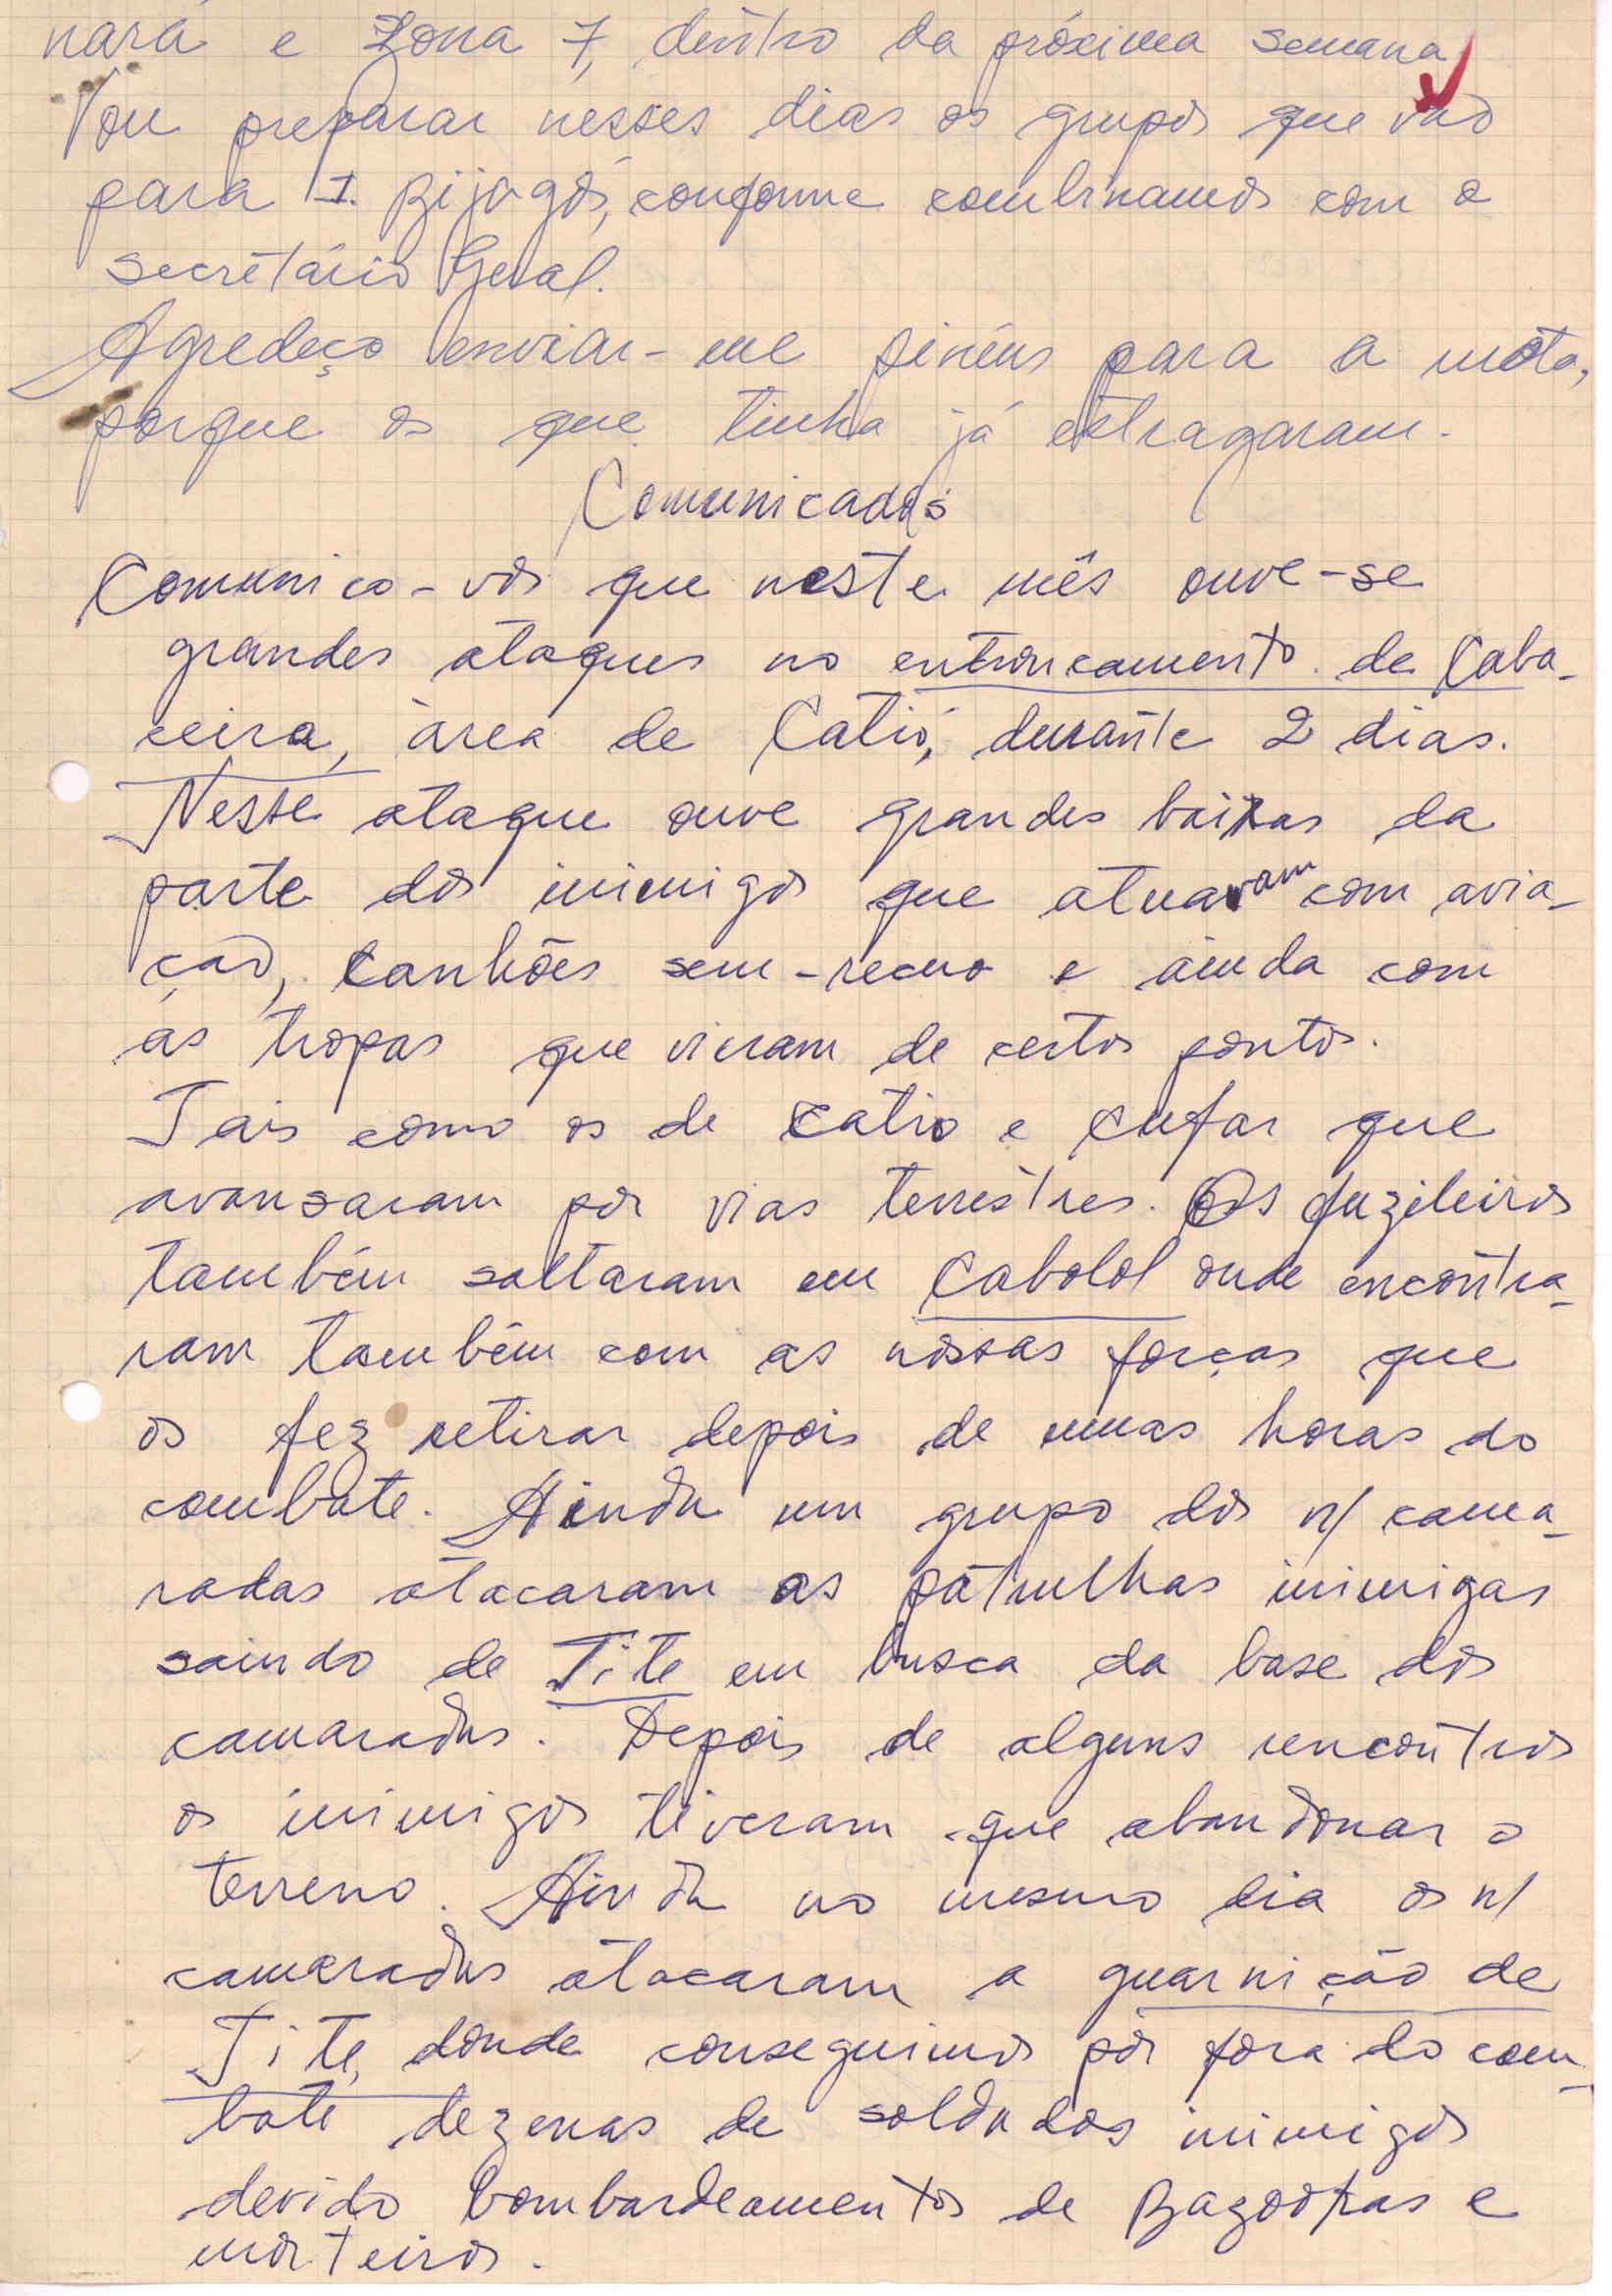 nara e Zona 7, dentro da próxima semana
Vou preparar nesses dias os grupos que vão
para I. Bijagós, conforme combinamos com o
secretário Geral.
Agredeço enviar-me pinéus para a moto,
porque os que tinha já estragaram.
Comunicados
Comunico-vos que neste mês ouve-se
grandes ataques no entroncamento de Caba-
ceira, área de Catió, durante 2 dias.
Neste ataque ouve grandes baixas da
parte dos inimigos que atuavam com avia-
ção, canhões sem-recuo e ainda com
as tropas que vieram de certos pontos.
Tais como os de Catio e Cufar que
avansaram por vias terrestres. Os fuzileiros
também saltaram em Cabolol onde encontra-
ram também com as nossas forças que
os fez retirar depois de umas horas do
combate. Ainda um grupo dos n/ cama-
radas atacaram as patrulhas inimigas
saindo de Tite em busca da base dos
camaradas. Depois de alguns rencontros
os inimigos tiveram que abandonar o
terreno. Ainda no mesmo dia os n/
camaradas atacaram a guarnição de
Tite, donde conseguimos pôr fora do com-
bate dezenas de soldados inimigos
devido bombardeamentos de Bazookas e
morteiros.